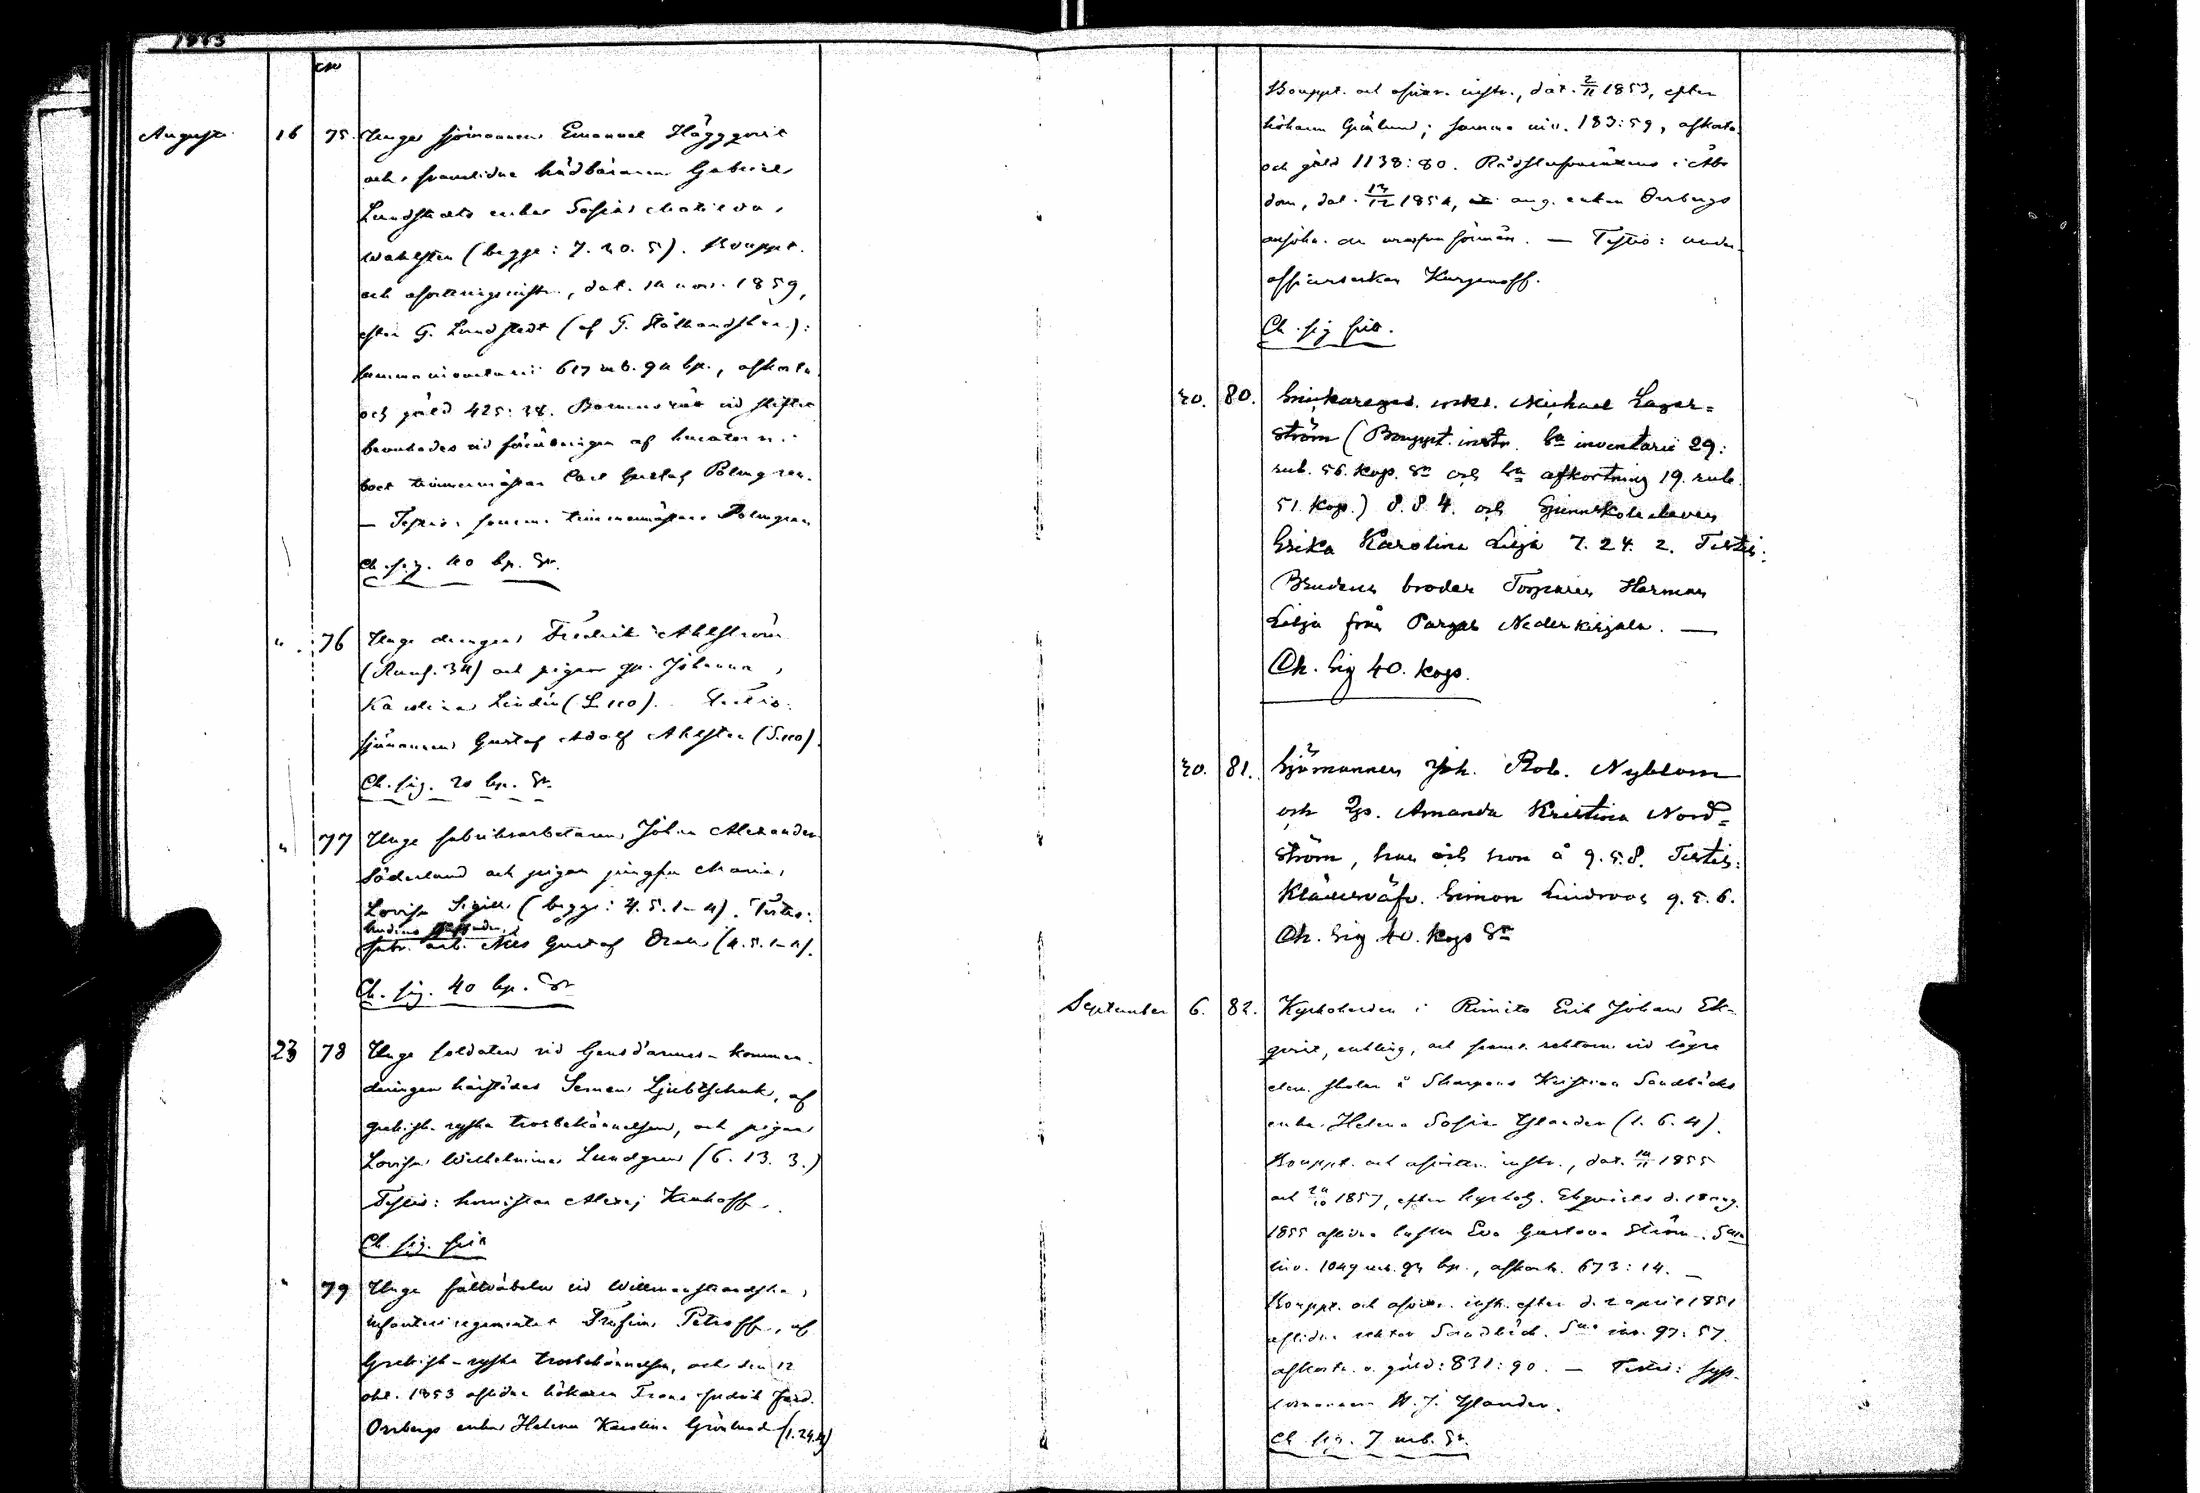 1863
Augusti 16 75. Unge sjömannen Emanuel Häggqvist
och framlidne Gabriel
Lundstedts enka Sofia Matilda
Wahlsten (begge: 7. 20. 5). Bouppt.
och afvittringsinstr., dat. 14 nov. 1859,
efter G. Lundstedt (af G. Stålhandske):
summa inventarii 617 rub. 94 kp., afkortn.
och gäld 425: 38.
vid af
timmermannen Carl Gustaf Palmgren.
— Testis: samme timmerman Palmgren
Ch. sig. 40 kp. Sr.
" 76 Unge drengen Fredrik Ahlström
(Kansl. 34) och pigan jgn. Johanna
Karolina Lindén (S. 110). Testis:
sjömannen Gustaf Adolf Ahlsten (S. 110).
Ch. sig. 20 kp. Sr.
" 77 Unge fabriksarbetaren Johan Alexander
Söderlund och pigan jungfru Maria
Lovisa Sigell (begge: 4. 5. 1–4). Testis:
brudens
fabr. arb. Nils Gustaf (4. 5. 1–4).
Ch. sig. 40 kp. Sr
23 78 Unge soldaten vid Gensd'armes-komman-
deringen härstädes Semen Ljubtschuk, af
grekisk-ryska trosbekännelsen, och pigan
Lovisa Wilhelmina Lundgren (6. 13. 3.)
Testis: hornisten Alexej
Ch. sig. fritt
" 79 Unge fältväbeln vid Willmanstrandska
infanteriregementet Trufim Petroff, af
Grekisk-ryska trosbekännelsen, och den 12
okt. 1853 aflidne hökaren Frans Fredrik Ferd.
Orrbergs enka Helena Karolina Grönlund (1. 24. 4)
Bouppt. och afvittr. instr., dat. 2/11 1853, efter
hökaren Grönlund; summa inv. 183: 59, afkortn.
och gäld 1138: 80. Rådstufvurättens i Åbo
dom, dat. 13/12 1854, ang. enkan Orrbergs
ansökn. om urarfva förmån. — Testis: under-
officersenkan Kurgenoff.
Ch. sig fritt.
30. 80. Snickareges. enkl. Michael Lager=
ström (Bouppt. instr. Sa inventarii 29:
rub. 56. kop. Sr och Sa afkortning 19. rub.
51 kop.) 8. 8. 4. och
Erika Karolina Lilja 7. 24. 2. Testis:
Brudens broder Torparen Herman
Lilja från Pargas Nederkirjala. —
Ch. Sig 40. kop.
30. 81. Sjömannen Joh. Rob. Nyblom
och Jgf. Amanda Kristina Nord=
ström, han och hon å 9. 5. 8. Testis:
Klädesväfv. Simon Lindroos 9. 5. 6.
Ch. Sig 40. kop Sr
September 6. 82. Kyrkoherden i Rimito Erik Johan Ek-
qvist, enkling, och framl. rektorn vid lägre
elem. skolan å Skarpans Kristian Sandbäcks
enka Helena Sofia Ylander (1. 6. 4).
Bouppt. och afvittr. instr., dat. 14/11 1855
och 24/10 1857, efter kyrkoh. Ekqvists d. 18 aug.
1855 aflidna hustru Eva Gustava Ström. Sma
inv. 1049 rub. 94 kp., afkortn. 673: 14. —
Bouppt. och afvittr. instr. efter d. 2 april 1851
aflidne rektor Sandbäck. Sma inv. 97: 57.
afkortn. o. gäld: 831: 90. — Testis: syss-
lomannen W. J. Ylander.
Ch sig. 7 rub. Sr.